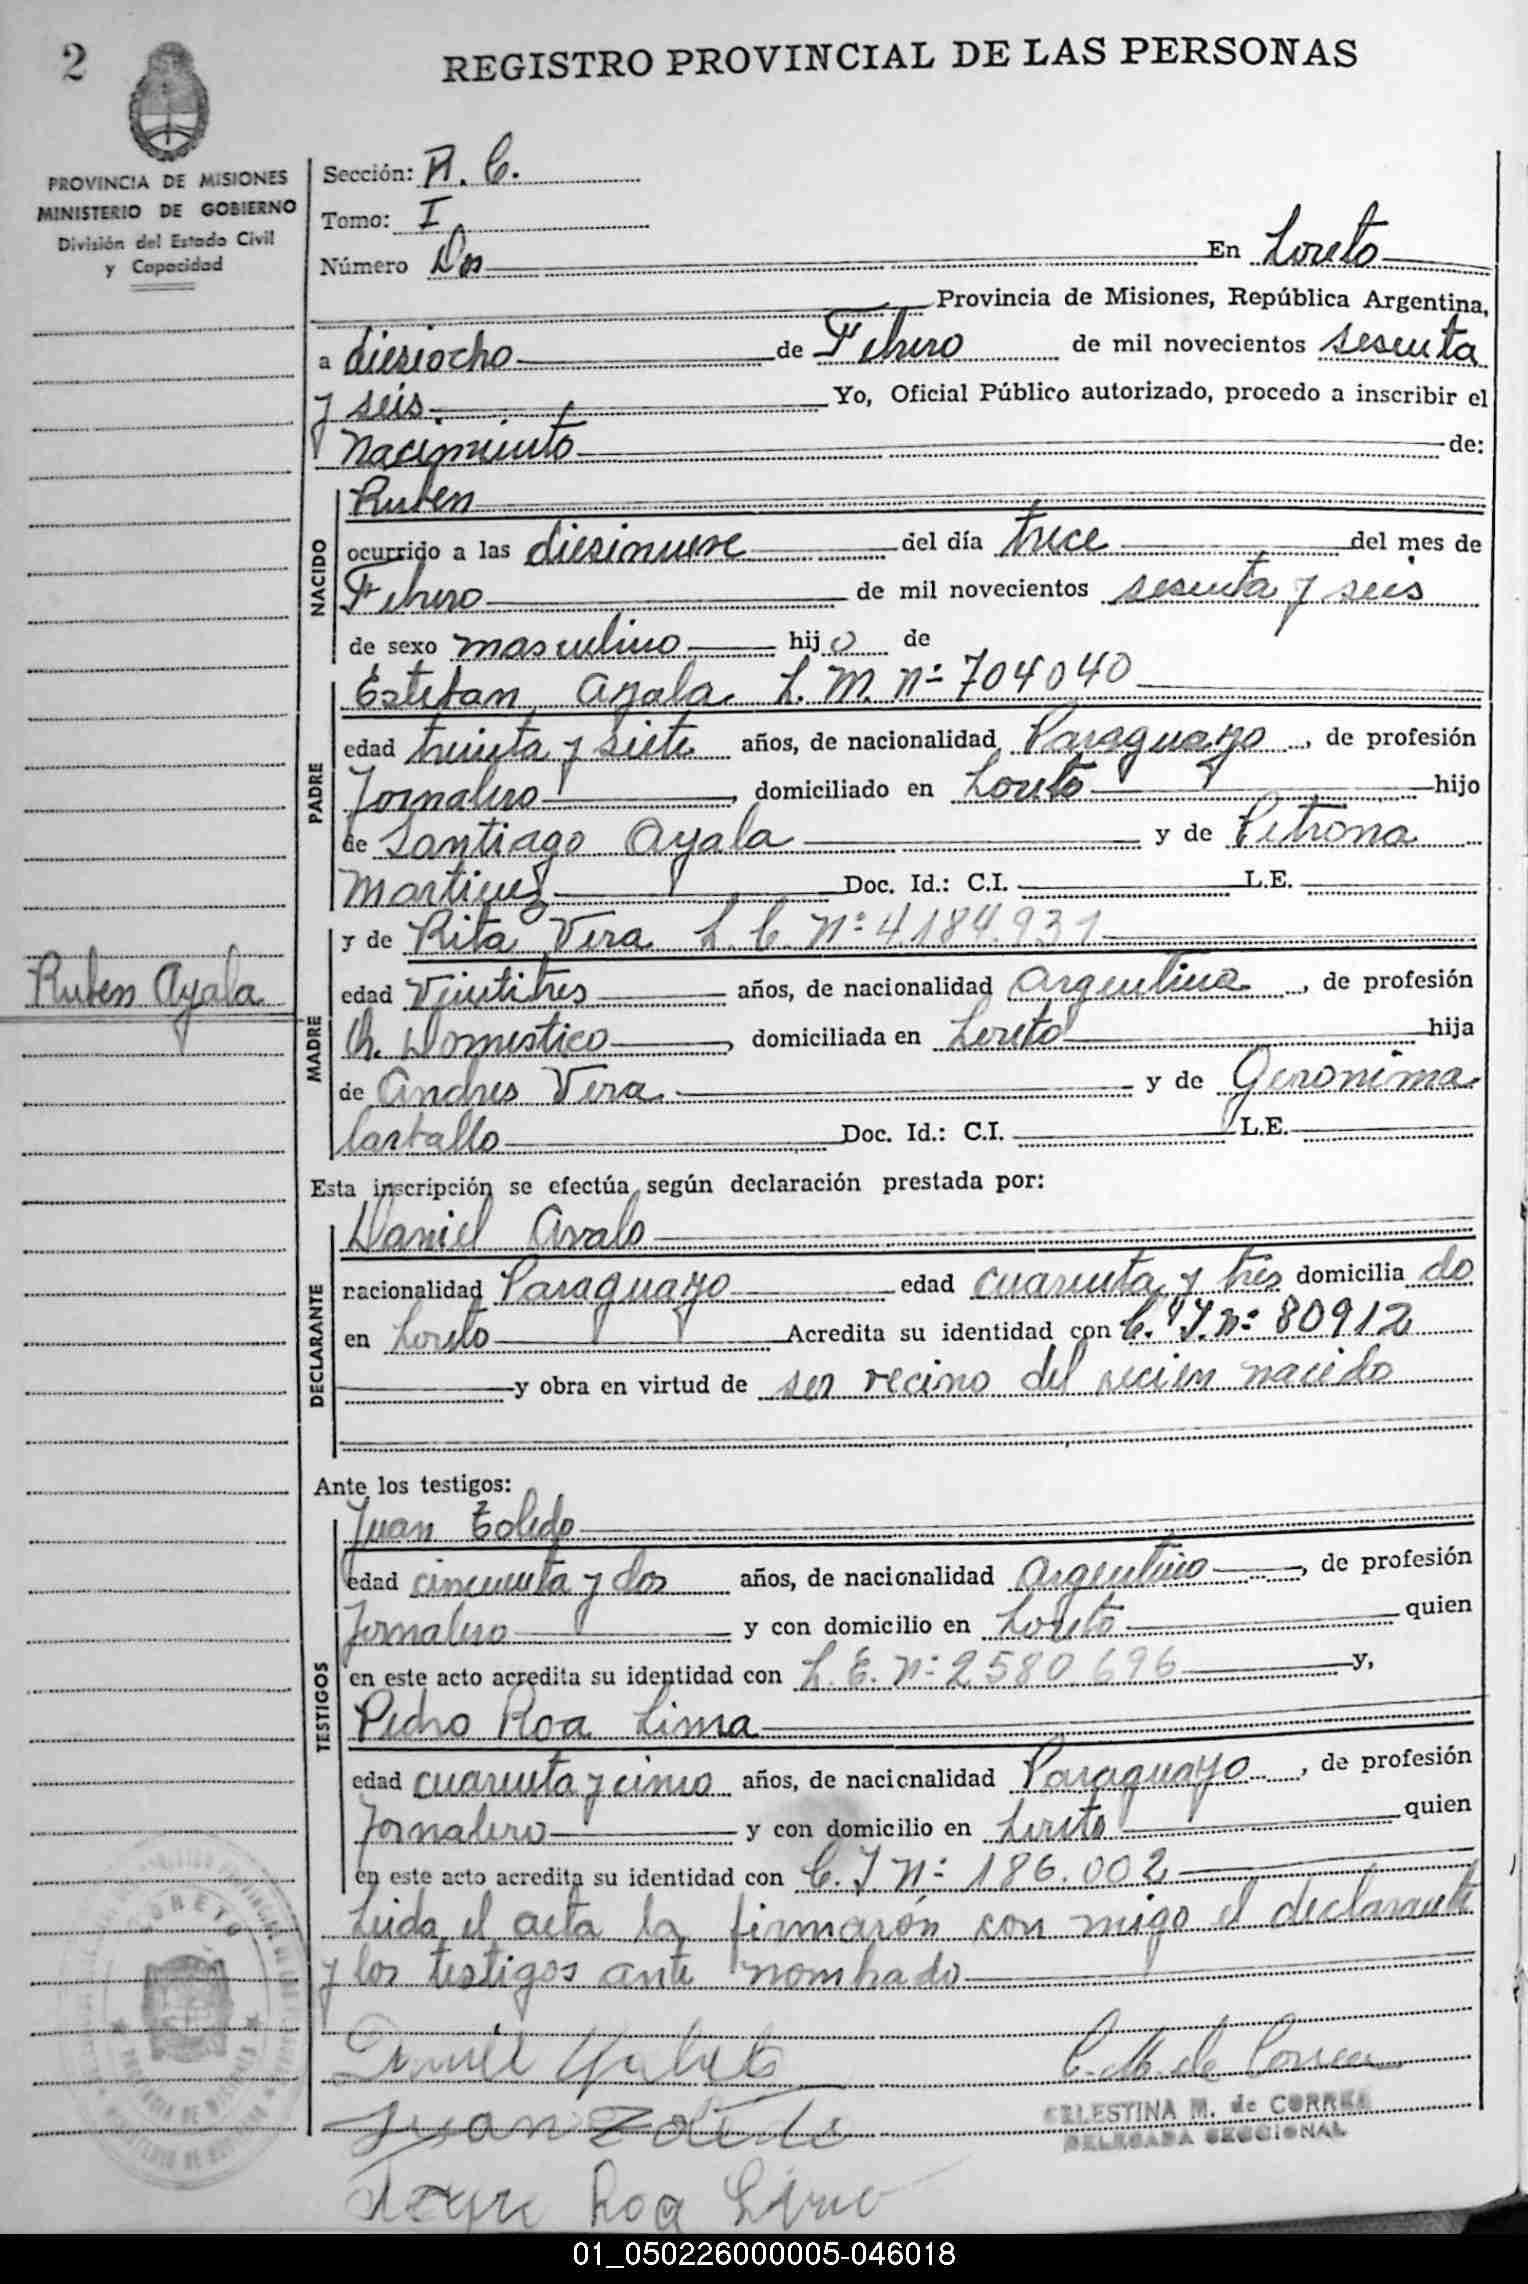 2
REGISTRO PROVINCIAL DE LAS PERSONAS
PROVINCIA DE MISIONES
MINISTERIO DE GOBIERNO
División del Estado Civil
y Capacidad
Sección: A. C.
Tomo: I
Número Dos En Loreto
Provincia de Misiones, República Argentina,
a diesiocho de Febrero de mil novecientos sesenta
y seis Yo, Oficial Público autorizado, procedo a inscribir el
Nacimiento de:
NACIDO
Ruben
ocurrido a las diesinueve del día trece del mes de
Febrero de mil novecientos sesenta y seis
de sexo masculino hijo de
PADRE
Esteban Ayala L. M. Nº 704040
edad treinta y siete años, de nacionalidad Paraguayo, de profesión
Jornalero, domiciliado en Loreto hijo
de Santiago Ayala y de Petrona
Martinez Doc. Id.: C.I. L.E.
MADRE
y de Rita Vera L. C. Nº 4.184.931
Ruben Ayala
edad Veintitres años, de nacionalidad Argentina, de profesión
Q. Domestico, domiciliada en Loreto hija
de Andres Vera y de Geronima
Carballo Doc. Id.: C.I. L.E.
Esta inscripción se efectúa según declaración prestada por:
DECLARANTE
Daniel Avalo
nacionalidad Paraguayo edad cuarenta y tres domiciliado
en Loreto Acredita su identidad con C. I. Nº 80912
y obra en virtud de ser vecino del recien nacido
Ante los testigos:
TESTIGOS
Juan Toledo
edad cincuenta y dos años, de nacionalidad Argentino, de profesión
Jornalero y con domicilio en Loreto quien
en este acto acredita su identidad con L. E. Nº 2580.696 y,
Pedro Roa Lima
edad cuarenta y cinco años, de nacionalidad Paraguayo, de profesión
Jornalero y con domicilio en Loreto quien
en este acto acredita su identidad con C. I. Nº 186.002
Leida el acta la firmarón con migo el declarante
y los testigos ante nombrado
LORETO
C. M. de Correa
CELESTINA M. de CORREA
DELEGADA SECCIONAL
Juan Toledo
Roa
01_050226000005-046018